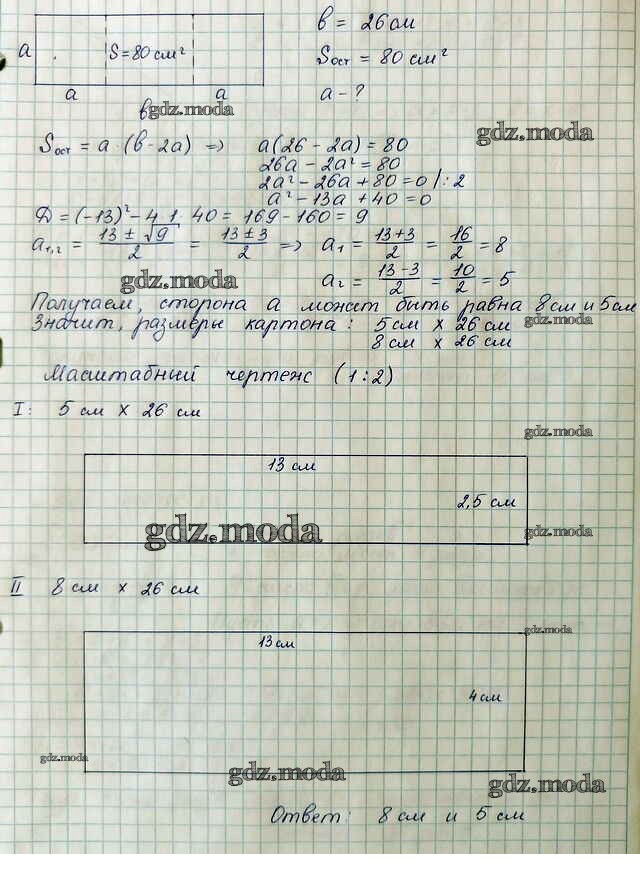 в = 26 см
a S = 80 см² Sост = 80 см²
a a a - ?
в gdz.moda
gdz.moda
Sост = a · (в - 2a) => a(26 - 2a) = 80
26a - 2a² = 80
2a² - 26a + 80 = 0 /: 2
a² - 13a + 40 = 0
D = (-13)² - 4 · 1 · 40 = 169 - 160 = 9
a₁,₂ = (13 ± √9)/2 = (13 ± 3)/2 => a₁ = (13+3)/2 = 16/2 = 8
gdz.moda a₂ = (13-3)/2 = 10/2 = 5
Получаем, сторона a может быть равна 8 см и 5 см
Значит, размеры картона: 5 см х 26 см
gdz.moda
8 см х 26 см
Масштабный чертеж (1:2)
I: 5 см х 26 см
gdz.moda
13 см
2,5 см
gdz.moda gdz.moda
II 8 см х 26 см
gdz.moda
13 см
4 см
gdz.moda
gdz.moda gdz.moda
Ответ: 8 см и 5 см